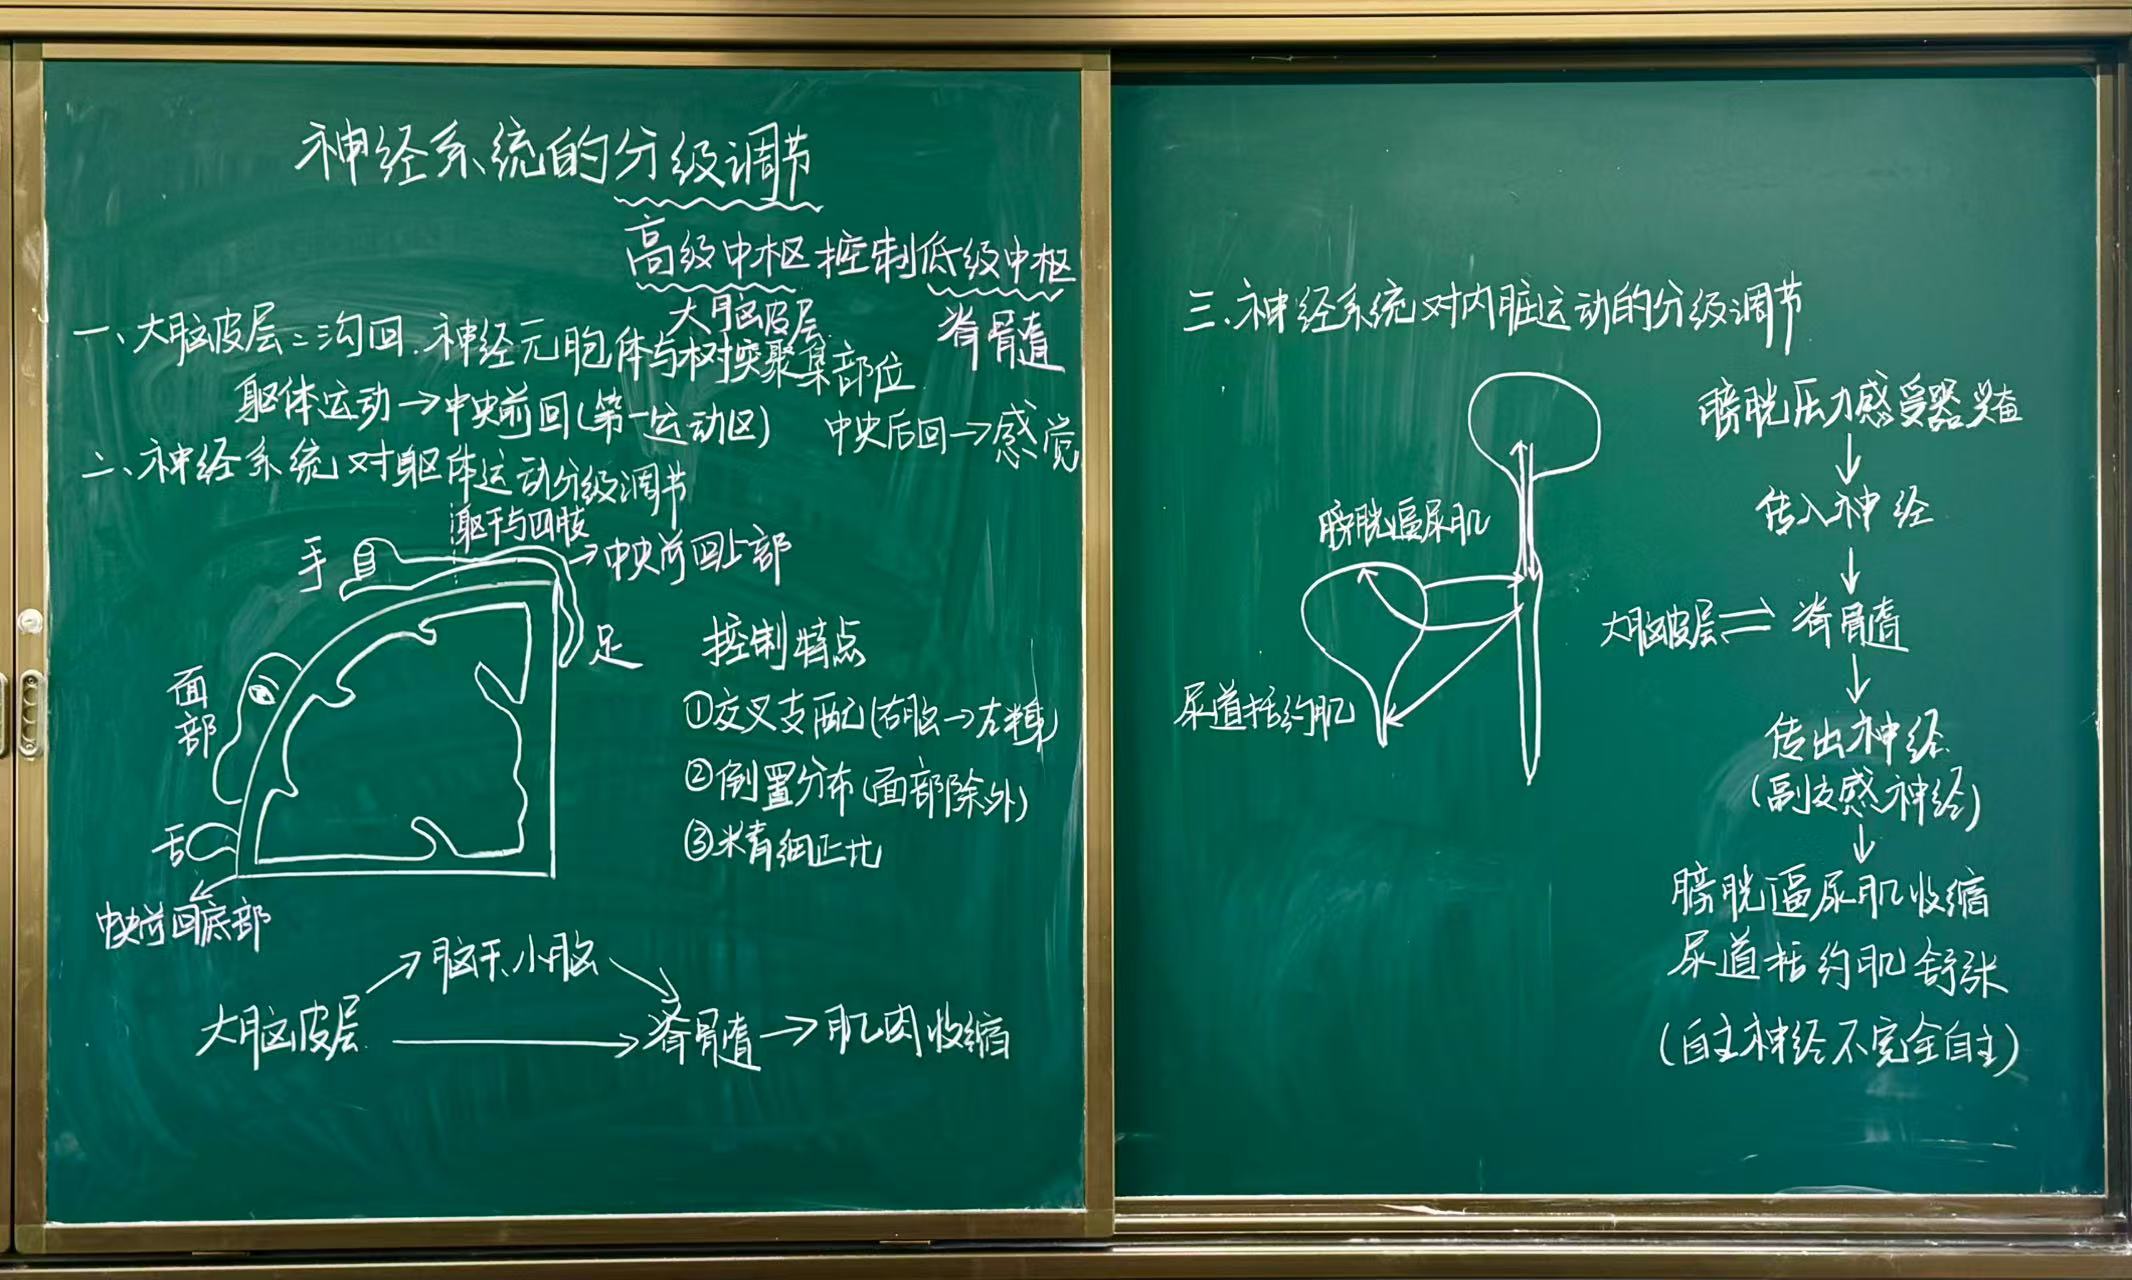 神经系统的分级调节
高级中枢控制低级中枢
大脑皮层 脊髓
一、大脑皮层:沟回.神经元胞体与树突聚集部位
躯体运动→中央前回(第一运动区) 中央后回→感觉
二、神经系统对躯体运动分级调节
躯干与四肢
手
→中央前回上部
足
面部
舌
中央前回底部
控制特点
①交叉支配(右脑→左半身)
②倒置分布(面部除外)
③精细正比
脑干、小脑
大脑皮层 → 脊髓→肌肉收缩
三、神经系统对内脏运动的分级调节
膀胱逼尿肌
尿道括约肌
膀胱压力感受器兴奋
↓
传入神经
↓
大脑皮层⇌脊髓
↓
传出神经
(副交感神经)
↓
膀胱逼尿肌收缩
尿道括约肌舒张
(自主神经不完全自主)